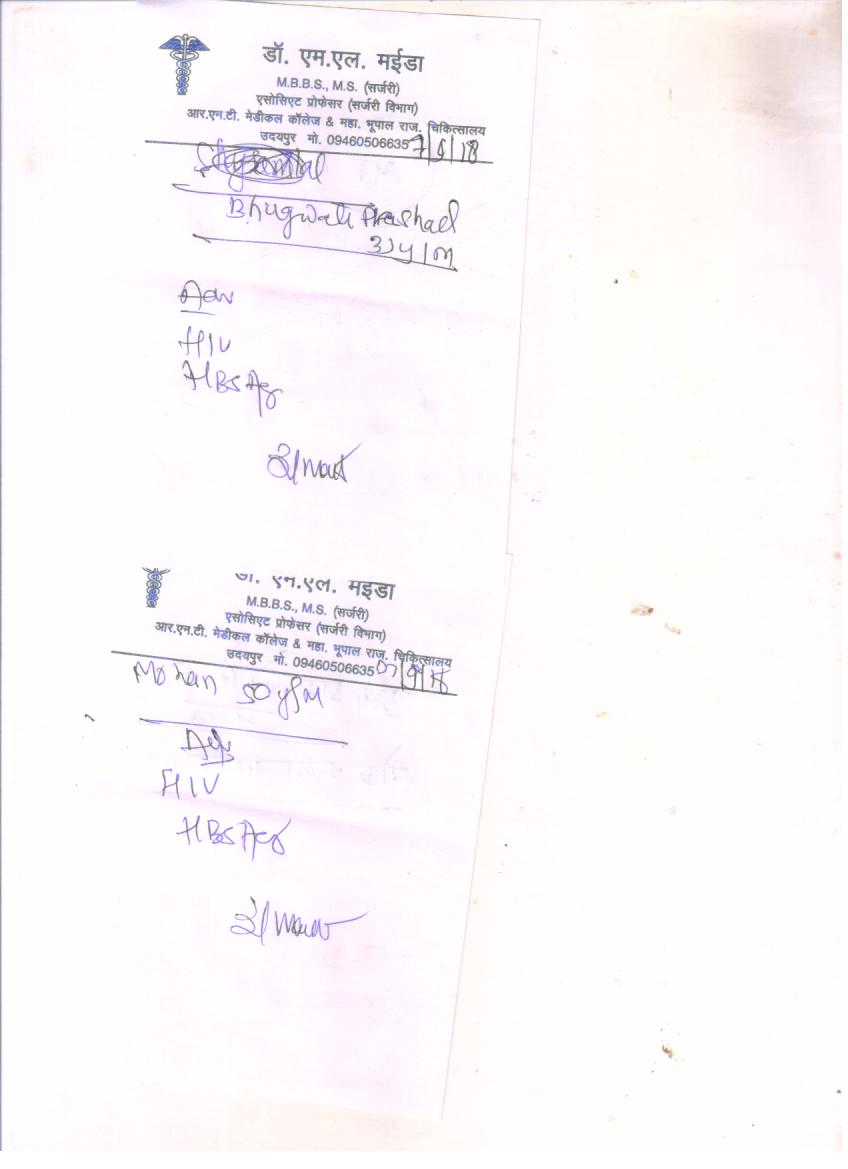 डॉ. एम.एल. मईडा
M.B.B.S., M.S. (सर्जरी)
एसोसिएट प्रोफेसर (सर्जरी विभाग)
आर.एन.टी. मेडीकल कॉलेज & महा. भूपाल राज. चिकित्सालय
उदयपुर मो. 09460506635
Bhugwati Prashad
HIV
HBSAg
डॉ. एम.एल. मइडा
M.B.B.S., M.S. (सर्जरी)
एसोसिएट प्रोफेसर (सर्जरी विभाग)
आर.एन.टी. मेडीकल कॉलेज & महा. भूपाल राज. चिकित्सालय
उदयपुर मो. 09460506635
Mohan 50 y/M
HIV
HBSAg